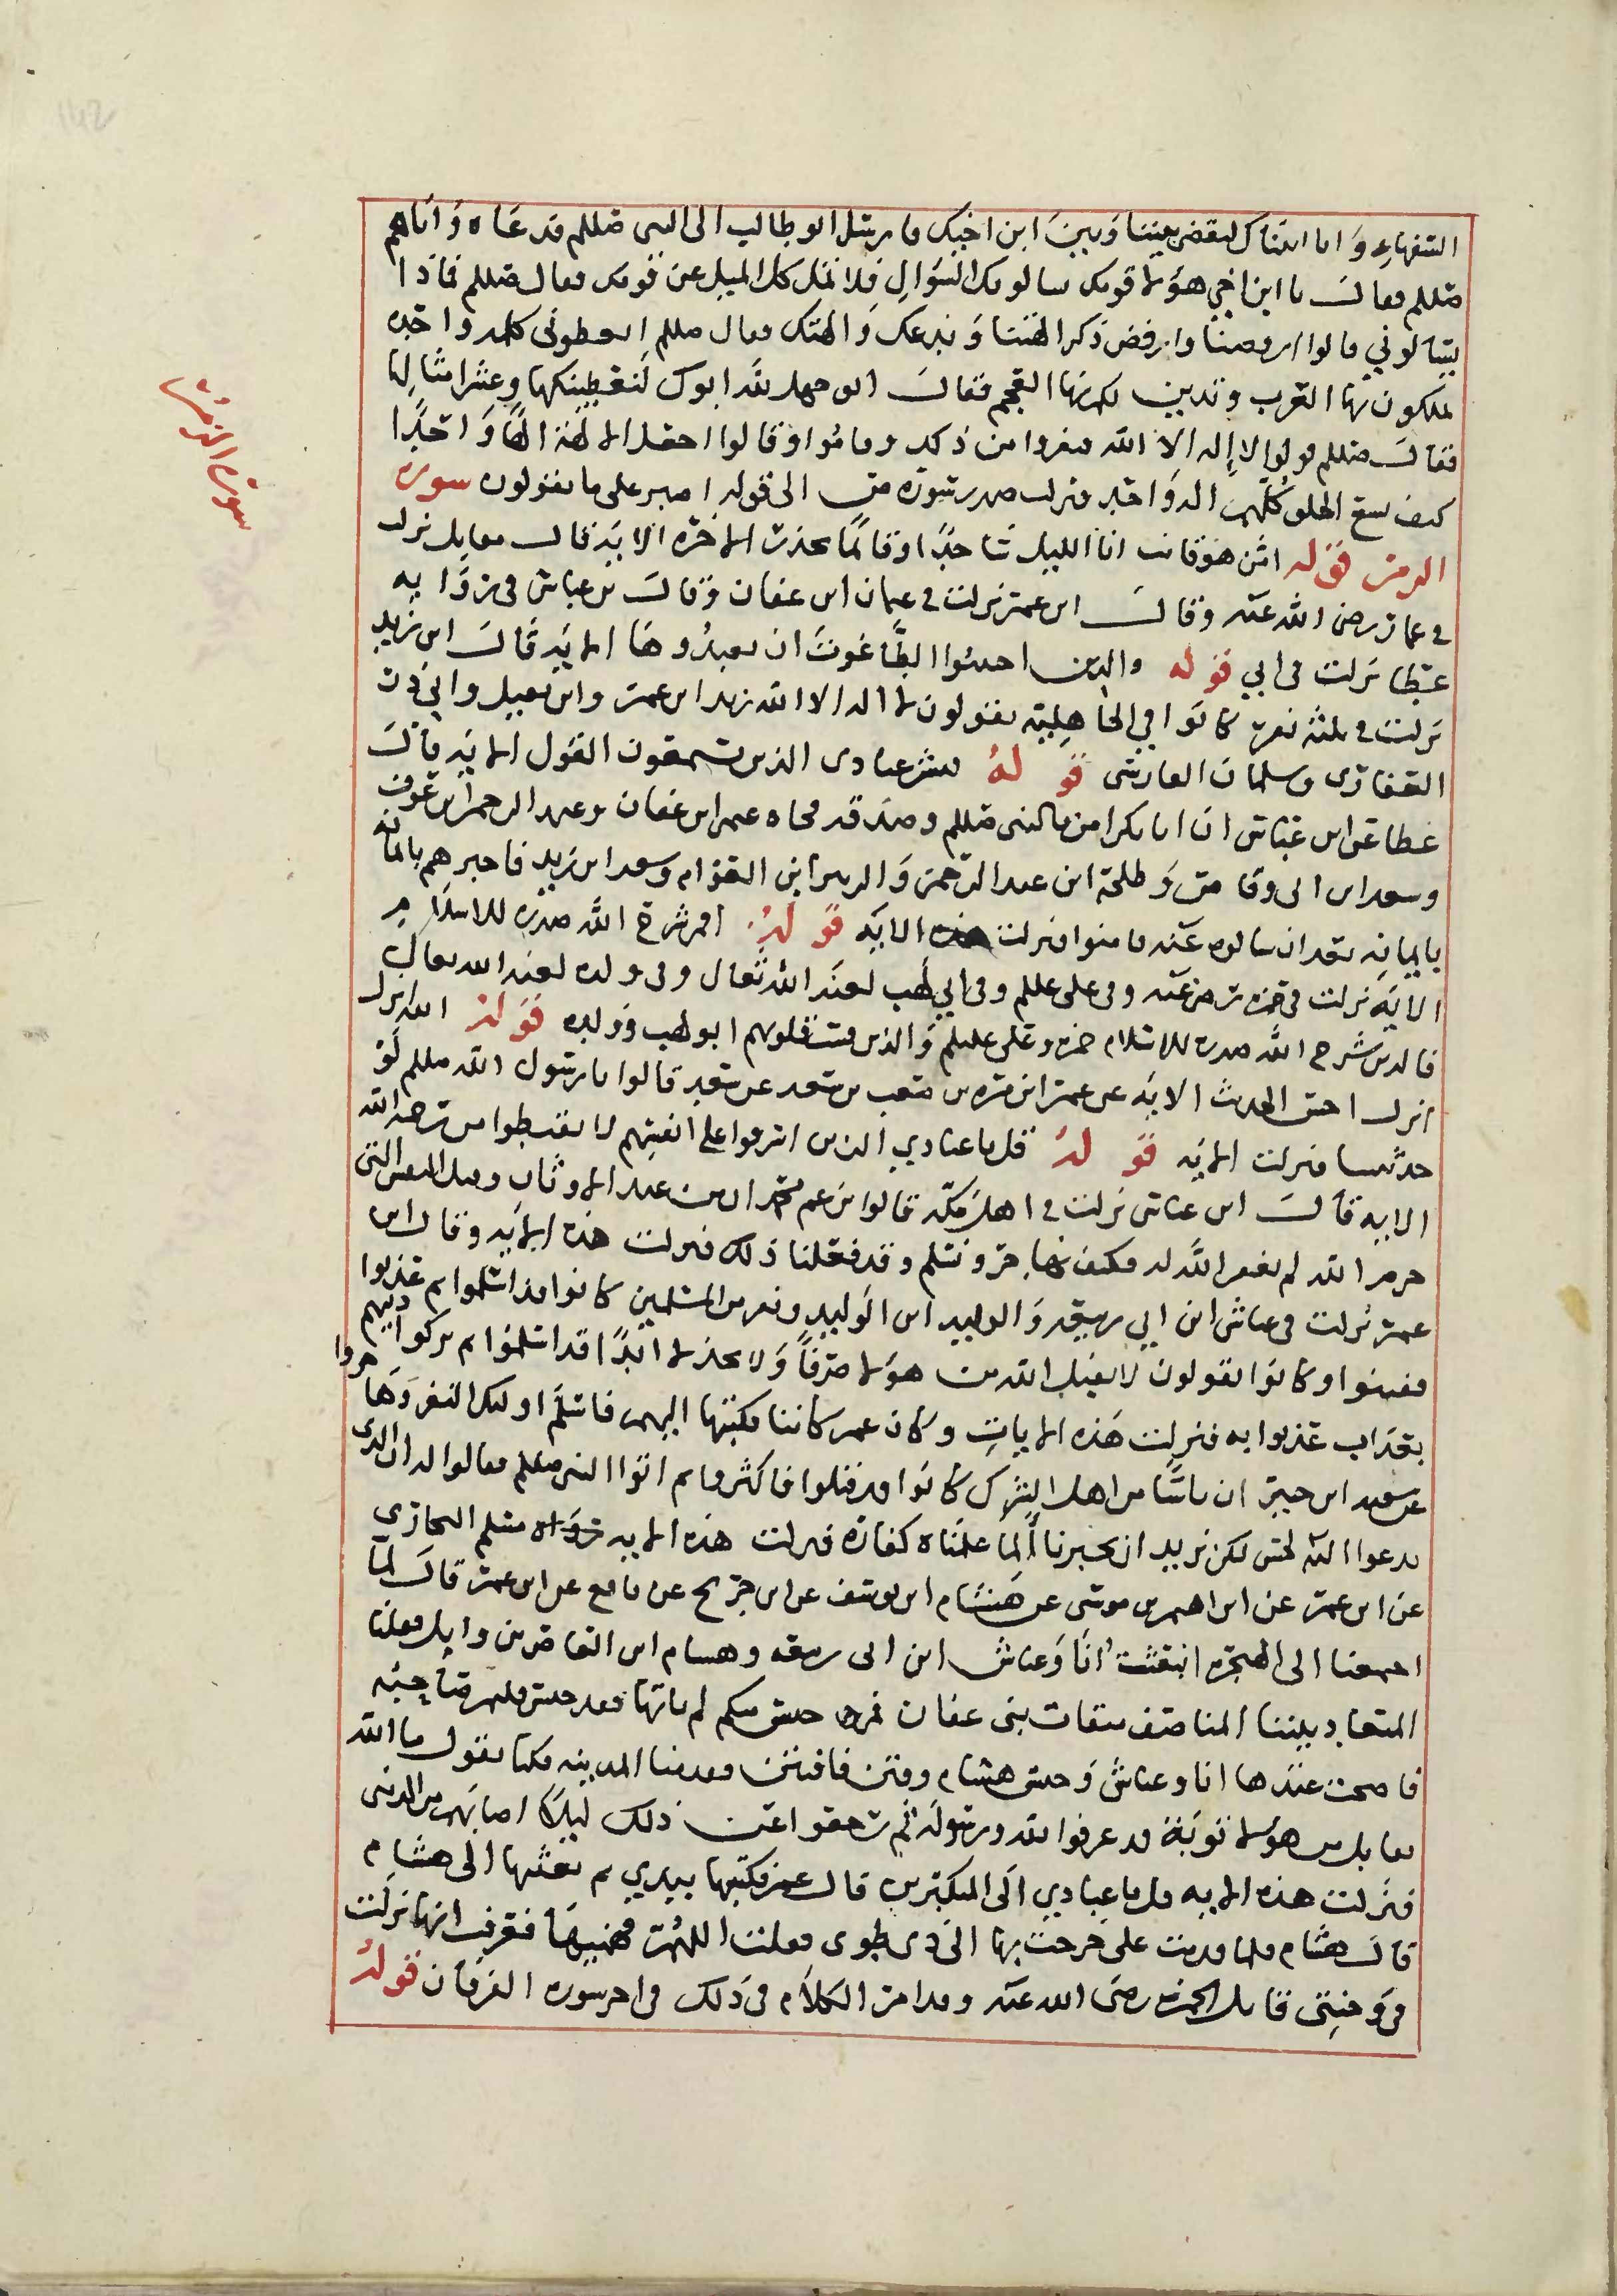 السفهاء وانا اتيناك لتقضي بيننا وبين ابن اخيك فارسل ابو طالب الى النبي صللم فدعاه واتاهم
صللم فقال يا ابن اخي هؤلا قومك سالوك السؤال فلا تمل كل الميل عن قومك فقال صللم فماذا
يسالوني قالوا ارفضنا وارفض ذكر الهتنا وندعك والهتك فقال صللم اتعطوني كلمه واحده
تملكون بها العرب وتدين لكم بها العجم فقال ابو جهل لله ابوك لنعطينكها وعشر امثالها
فقال صللم قولوا لا إله الا الله فنفروا من ذلك وقاموا وقالوا اجعل الالهة الها واحدا
كيف يسع الخلق كلهم اله واحد فنزلت صدر سورة ص الى قوله اصبر على ما يقولون سورة
الزمر قوله امن هو قانت اناء الليل ساجدا وقائما يحذر الاخره الاية قال مقاتل نزلت
في عمار رضي الله عنه وقال ابن عمر نزلت في عثمان ابن عفان وقال بن عباس في روايه
عطا نزلت في ابي قوله والذين اجتنبوا الطاغوت ان يعبدوها الاية قال ابن زيد
نزلت في ثلثة نفر كانوا في الجاهلية يقولون لا اله الا الله زيد ابن عمر وابن نفيل وابي ذر
الغفاري وسلمان الفارسي قوله فبشر عبادى الذين يستمعون القول الاية قال
عطا عن ابن عباس ان ابا بكر امن بالنبي صللم وصدقه فجاه عثمن ابن عفان وعبد الرحمن ابن عوف
وسعد ابن ابي وقاص وطلحة ابن عبد الرحمن والزبير ابن العوام وسعد ابن زيد فاخبرهم بايمانه
بايمانه بعد ان سالوه عنه فامنوا فنزلت هذه الاية قوله افمن شرح الله صدره للاسلام
الاية نزلت في حمزه رضي عنه وفي علي عللم وفي ابي لهب لعنه الله تعالى وفي ولده لعنه الله تعالى
فالذين شرح الله صدره للاسلام حمزه وعلي عليلم والذين قست قلوبهم ابو لهب وولده قوله الله نزل
انزل احسن الحديث الاية عن عمر ابن مره بن مصعب بن سعد عن سعد قالوا يا رسول الله صللم لو
حدثتنا فنزلت الاية قوله قل يا عبادي الذين اسرفوا على انفسهم لا تقنطوا من رحمة الله
الاية قال ابن عباس نزلت في اهل مكة قالوا يزعم محمد ان من عبد الاوثان وقتل النفس التى
حرم الله لم يغفر الله له فكيف نهاجر ونسلم وقد فعلنا ذلك فنزلت هذه الاية وقال ابن
عمر نزلت في عياش ابن ابي ربيعه والوليد ابن الوليد ونفر من المسلمين كانوا قد اسلموا ثم عذبوا
ففتنوا وكانوا يقولون لا يقبل الله من هؤلا صرفا ولا عدلا ابدا قد اسلموا ثم تركوا دينهم
بعذاب عذبوا به فنزلت هذه الايات وكان عمر كاتبا فكتبها اليهم فاسلم اوليك النفر وهاجروا
عن سعيد ابن جبير ان ناسا من اهل الشرك كانوا قد قتلوا فاكثروا ثم اتوا النبي صللم فقالوا له ان الذى
تدعوا اليه لحسن لكن نريد ان تخبرنا ألما علمناه كفاره فنزلت هذه الاية رواه مسلم البخاري
عن ابن عمر عن ابراهيم بن موسى عن هشام ابن يوسف عن ابن جريح عن نافع عن ابن عمر قال لما
اجمعنا الى الهجره انبعثت انا وعياش ابن ابي ربيعه وهشام ابن العاص بن وايل فقلنا
الميعاد بيننا المناصف ميقات بني غفان فمن حبس منكم لم ياتها فقد حبس فليمر صاحبه
فاصبحت عندها انا وعياش وحبس هشام وفتن فافتتن فقدمنا المدينه فكنا نقول ما الله
بقابل من هؤلا توبة قد عرفوا الله ورسوله ثم رجعوا عن ذلك لبلاء اصابهم من الدنيى
فنزلت هذه الايه قل يا عبادي الى المتكبرين قال عمر فكتبتها بيدي ثم بعثتها الى هشام
قال هشام فلما قدمت علي خرجت بها الى ذى طوى فقلت اللهم فهمنيها فعرفت انها نزلت
في وحشي قاتل الحمزه رضي الله عنه وقد امر الكلام في ذلك في اخر سوره الفرقان قوله
سورة الزمر